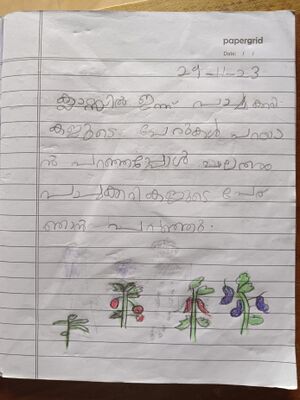 papergrid
Date: / /
29-11-23
ക്ലാസ്സിൽ ഇന്ന് പച്ചക്കറി
കളുടെ പേരുകൾ പറയാ
ൻ പറഞ്ഞപ്പോൾ പലതരം
പച്ചക്കറികളുടെ പേര്
ഞാൻ പറഞ്ഞു.